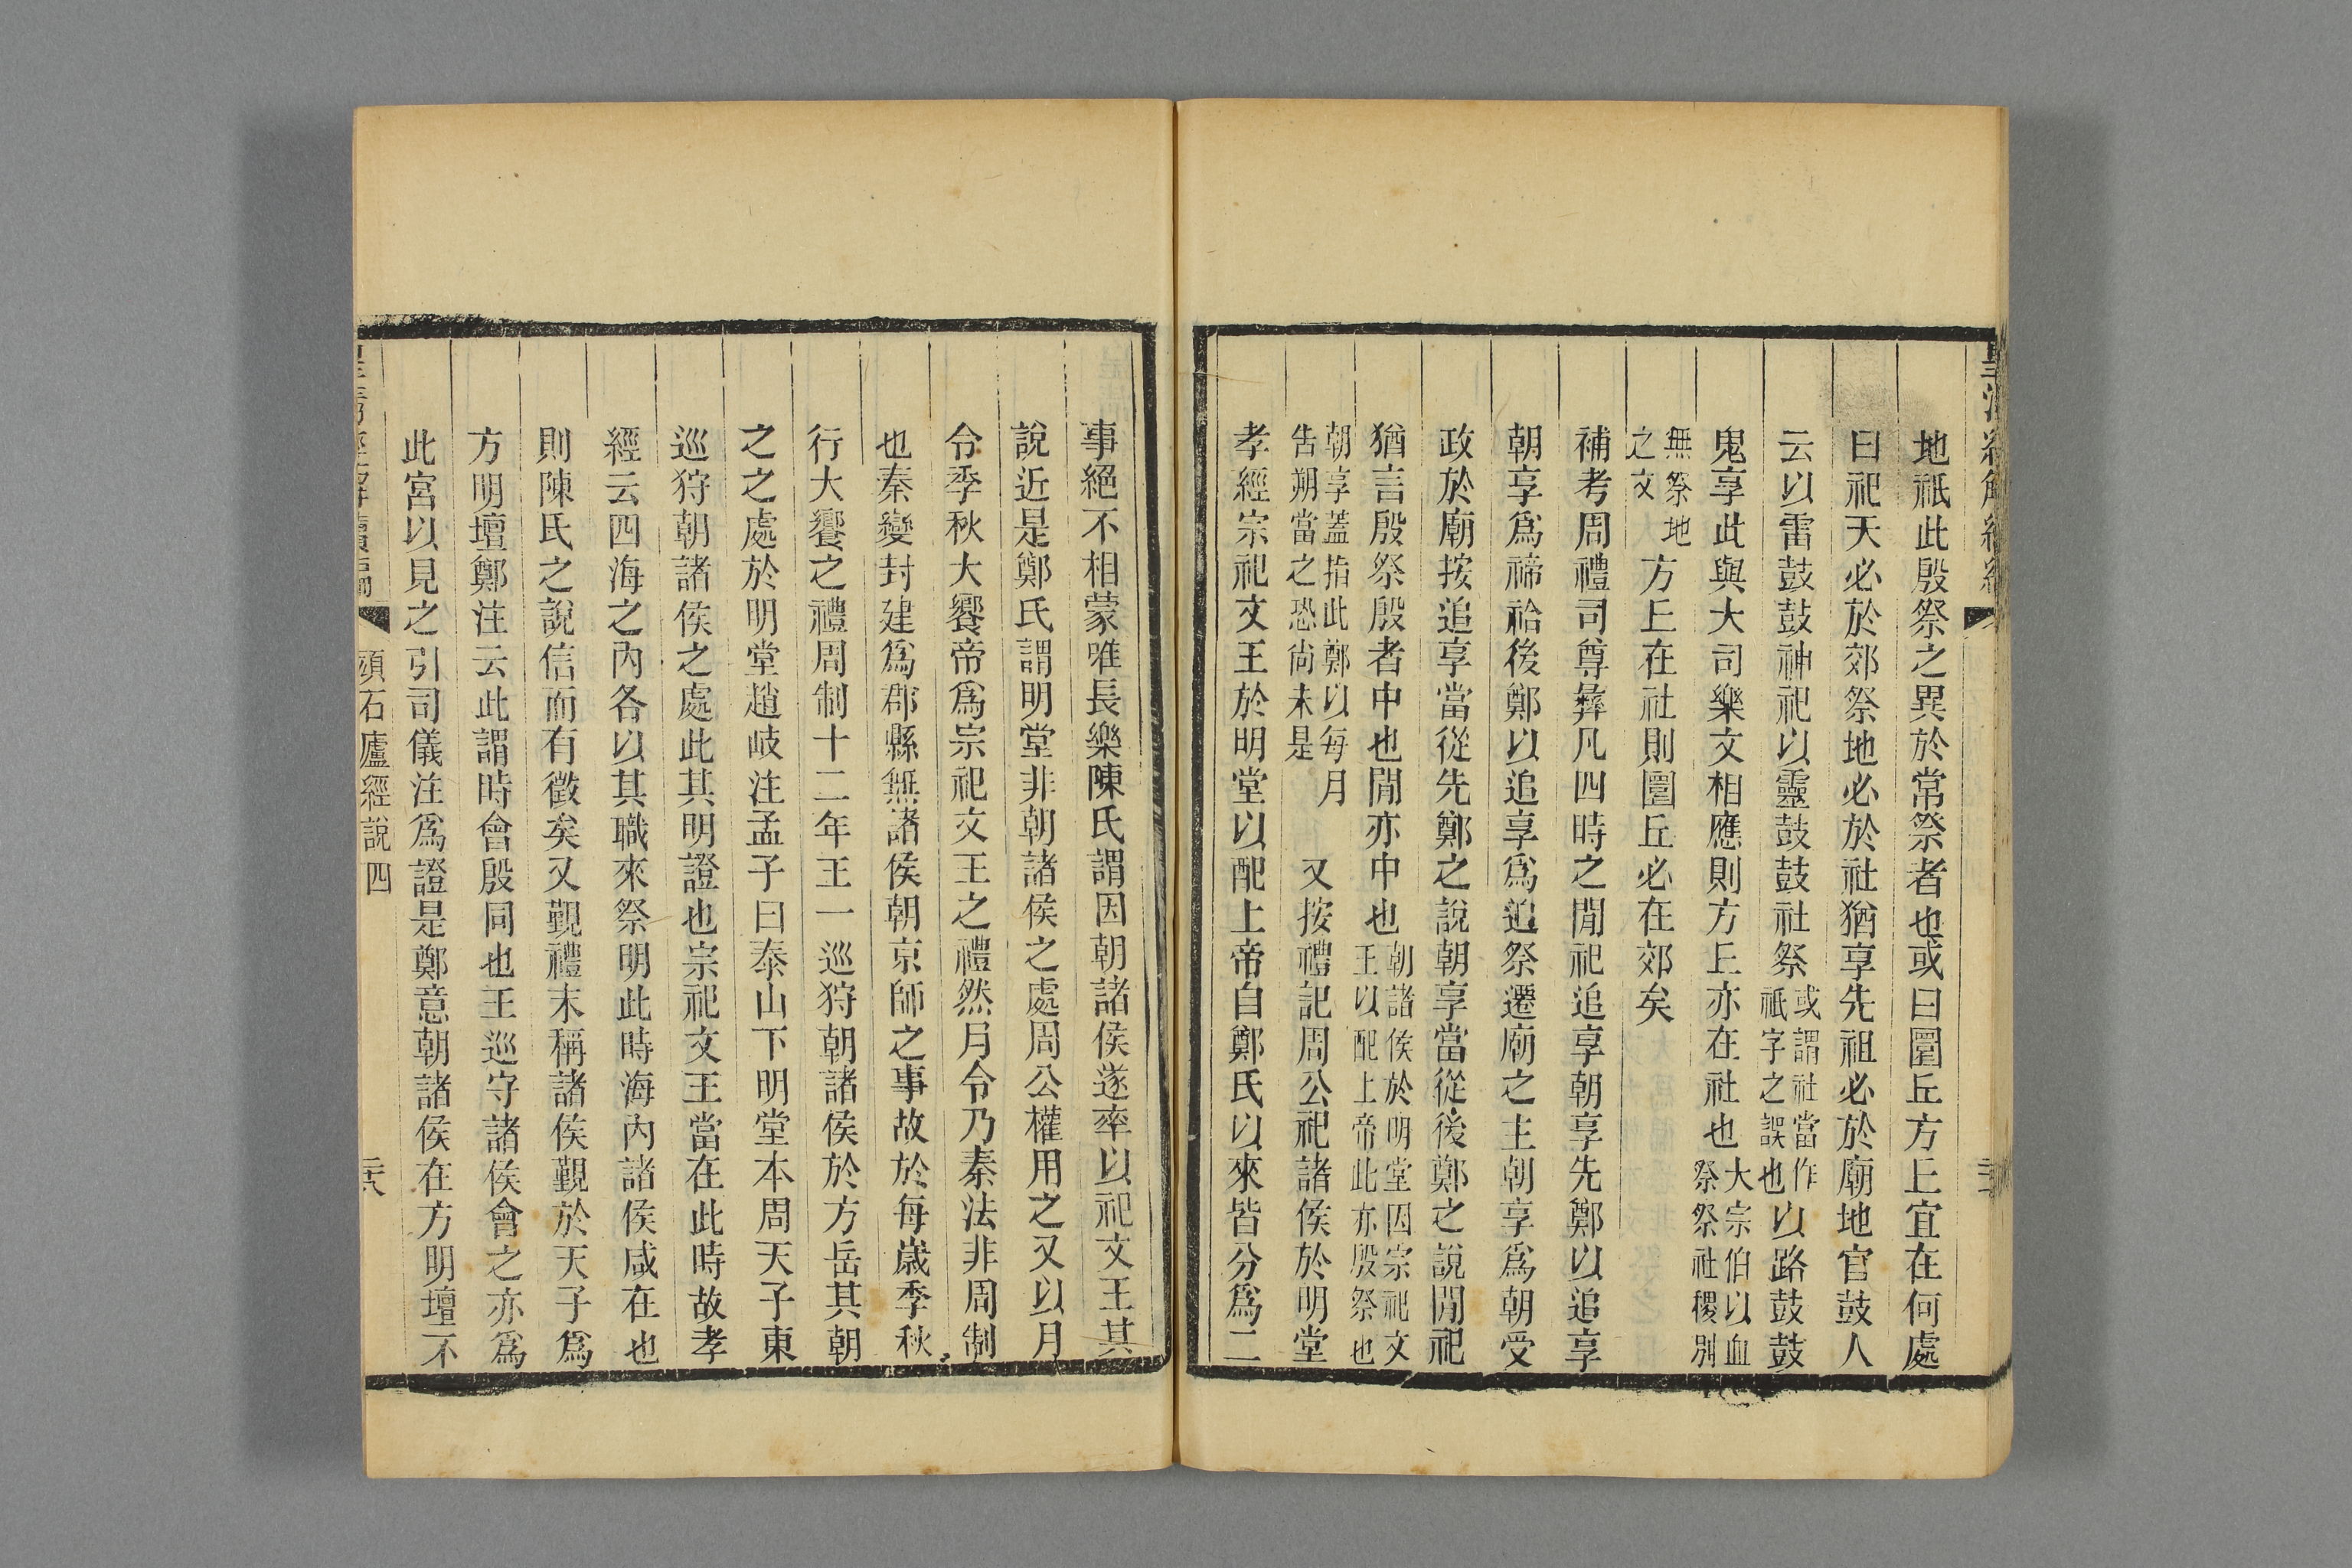 地祇此殷祭之異於常祭者也或曰圜丘方丘宜在何處
曰祀天必於郊祭地必於社猶享先祖必於廟地官鼓人
云以雷鼓鼓神祀以靈鼓鼓社祭或謂社當作祇字之誤也以路鼓鼓
鬼享此與大司樂文相應則方丘亦在社也大宗伯以血祭祭社稷別
無祭地之文方丘在社則圜丘必在郊矣
補考周禮司尊彝凡四時之閒祀追享朝享先鄭以追享
朝享爲禘祫後鄭以追享爲追祭遷廟之主朝享爲朝受
政於廟按追享當從先鄭之說朝享當從後鄭之說閒祀
猶言殷祭殷者中也閒亦中也朝諸侯於明堂因宗祀文王以配上帝此亦殷祭也
朝享蓋指此鄭以每月告朔當之恐尚未是　又按禮記周公祀諸侯於明堂
孝經宗祀文王於明堂以配上帝自鄭氏以來皆分爲二
事絕不相蒙唯長樂陳氏謂因朝諸侯遂率以祀文王其
說近是鄭氏謂明堂非朝諸侯之處周公權用之又以月
令季秋大饗帝爲宗祀文王之禮然月令乃秦法非周制
也秦變封建爲郡縣無諸侯朝京師之事故於每歲季秋
行大饗之禮周制十二年王一巡狩朝諸侯於方岳其朝
之之處於明堂趙岐注孟子曰泰山下明堂本周天子東
巡狩朝諸侯之處此其明證也宗祀文王當在此時故孝
經云四海之內各以其職來祭明此時海內諸侯咸在也
則陳氏之說信而有徵矣又覲禮末稱諸侯覲於天子爲
方明壇鄭注云此謂時會殷同也王巡守諸侯會之亦爲
此宮以見之引司儀注爲證是鄭意朝諸侯在方明壇不
頭石廬經說四